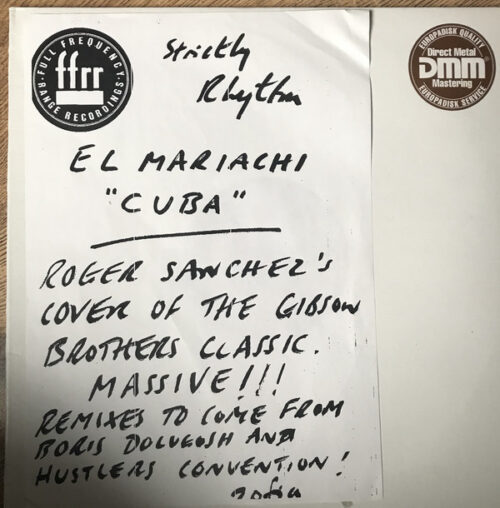 FULL FREQUENCY
ffrr
RANGE RECORDINGS
Strictly
Rhythm
EUROPADISK QUALITY
Direct Metal
DMM
Mastering
EUROPADISK SERVICE
EL MARIACHI
"CUBA"
ROGER SANCHEZ'S
COVER OF THE GIBSON
BROTHERS CLASSIC.
MASSIVE!!!
REMIXES TO COME FROM
BORIS DOLUGOSH AND
HUSTLERS CONVENTION!